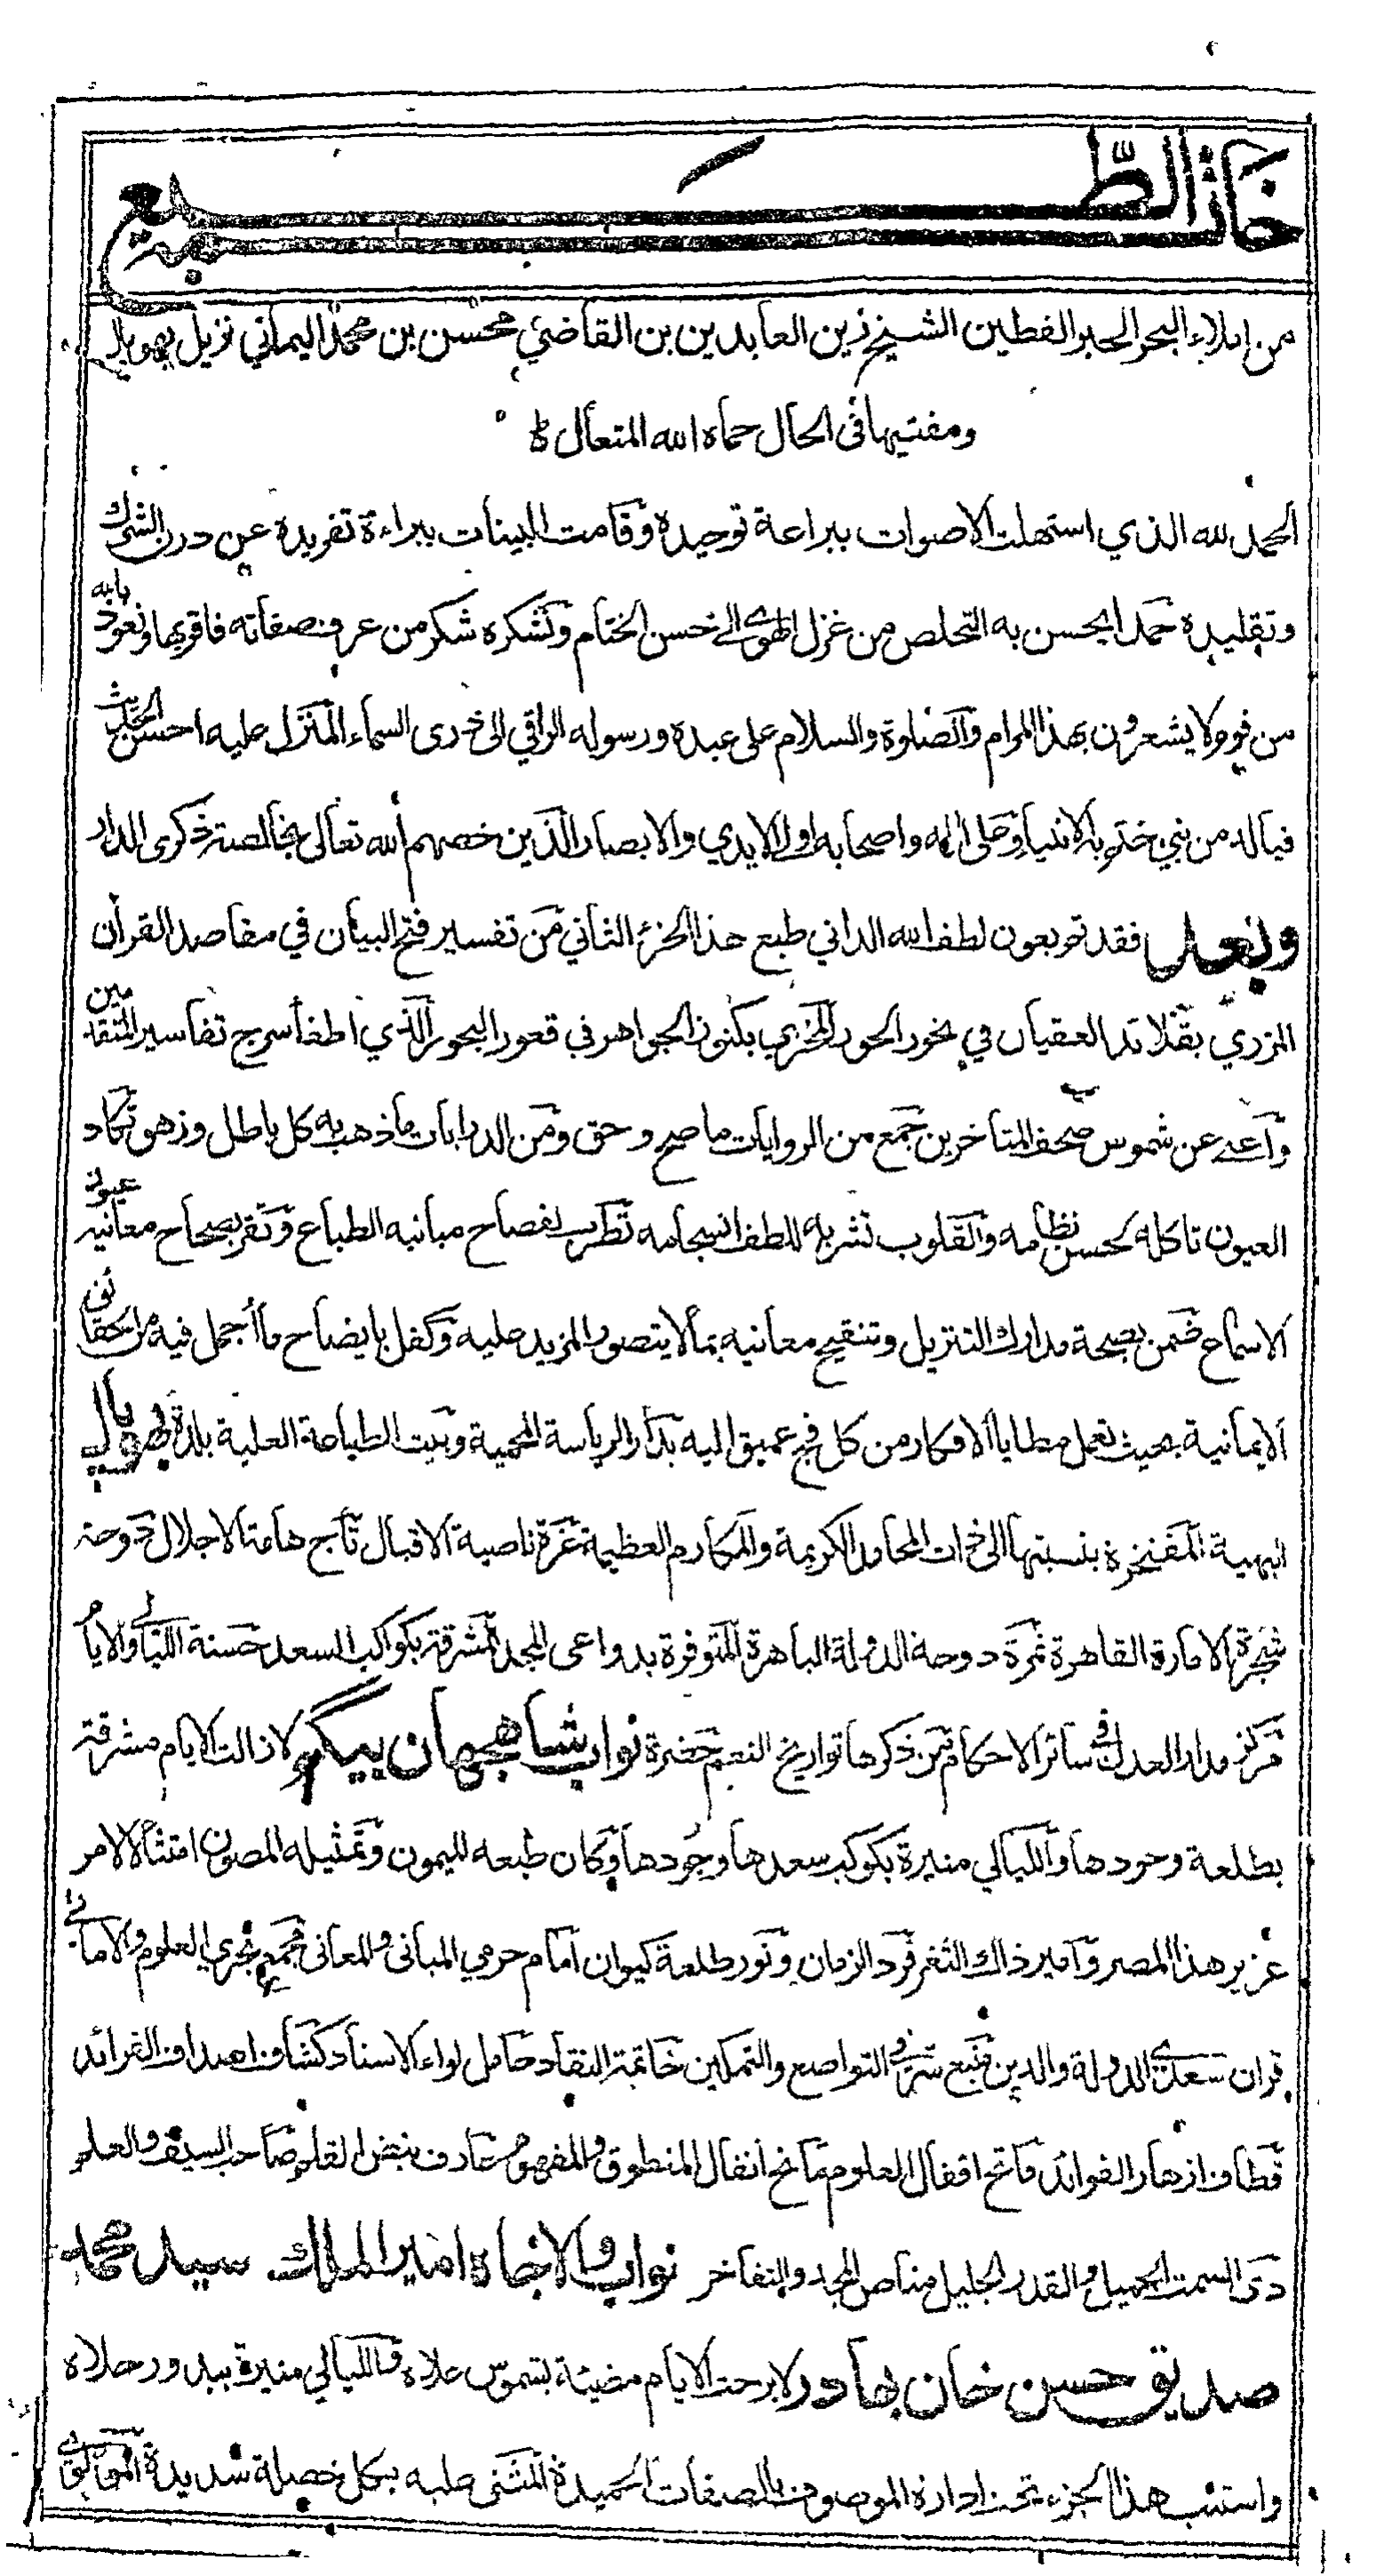 خاتمة الطبع
من إملاء البحر الحبر الفطين الشيخ زين العابدين بن القاضي محسن بن محمد اليماني نزيل بهوپال
ومفتيها في الحال حماه الله المتعال
الحمد لله الذي استهلت الاصوات ببراعة توحيده وقامت البينات ببراءة تفريده عن درن الشرك
وتقليده حمدا يحسن به التخلص من غزل الهوى الى حسن الختام ونشكره شكر من عرف صفاته فاقر بها ونعوذ بالله
من قوم لا يشعرون بهذا المرام والصلوة والسلام على عبده ورسوله الراقي الى ذرى السماء المنزل عليه احسن الحديث
فياله من نبي ختم به الانبياء وعلى اله واصحابه اولى الايدي والابصار الذين خصهم الله تعالى بخالصة ذكرى الدار
وبعد فقد تم بعون لطف الله الداني طبع هذا الجزء الثاني من تفسير فتح البيان في مقاصد القرأن
المزري بقلائد العقيان في نحور الحور المخزي بكنوز الجواهر في قعور البحور الذي اطفأ سرج تفاسير المتقدمين
وأغنى عن شموس صحف المتأخرين جمع من الروايات ما صح وحق ومن الدرايات ما ذهب به كل باطل وزهق تكاد
العيون تاكله لحسن نظامه والقلوب تشربه للطف انسجامه تطرب لفصاح مبانيه الطباع وتقر بصحاح معانيه عيون
الاسماع ضمن بصحة مدارك التنزيل وتنقيح معانيه بما لا يتصور المزيد عليه وكفل بايضاح ما أجمل فيه من الحقائق
الايمانية بحيث تعمل مطايا الافكار من كل فج عميق اليه بدار الرياسة المحمية وبيت الطباعة العلية بلدة بهوپال
البهية المفتخرة بنسبتها الى ذات المحامد الكريمة والمكارم العظيمة غرة ناصية الاقبال تاج هامة الاجلال دوحة
شجرة الامارة القاهرة ثمرة دوحة الدولة الباهرة المتوفرة بدواعى المجد المشرقة بكواكب السعد حسنة الليالي والايام
مركز مدار العدل في سائر الاحكام من ذكرها تواريخ النعم حضرة نواب شاهجهان بيگم لا زالت الايام مشرقة
بطلعة وجودها والليالي منيرة بكوكب سعدها وجودها وكان طبعه الميمون وتمثيله المصون امتثالا لامر
عزيز هذا المصر وأمير ذاك الثغر فرد الزمان ونور طلعة كيوان امام حرمي المباني والمعاني مجمع بحري العلوم والاماني
قران سعدي الدولة والدين منبع التواضع والتمكين خاتمة النقاد حامل لواء الاسناد كشاف اصداف الفرائد
قطاف ازهار الفوائد فاتح اقفال العلوم مانح أنفال المنطوق والمفهوم عارف بنبض القلم صاحب السيف والعلم
ذى السمت الجميل والقدر الجليل مناص المجد والتفاخر نواب والاجاه امير الملك سيد محمد
صديق حسن خان بهادر لا برحت الايام مضيئة بشموس علاه والليالي منيرة ببدور حلاه
واستتب هذا الجزء تحت ادارة الموصوف بالصفات الحميدة المثنى عليه بكل خصلة سديدة المولوي